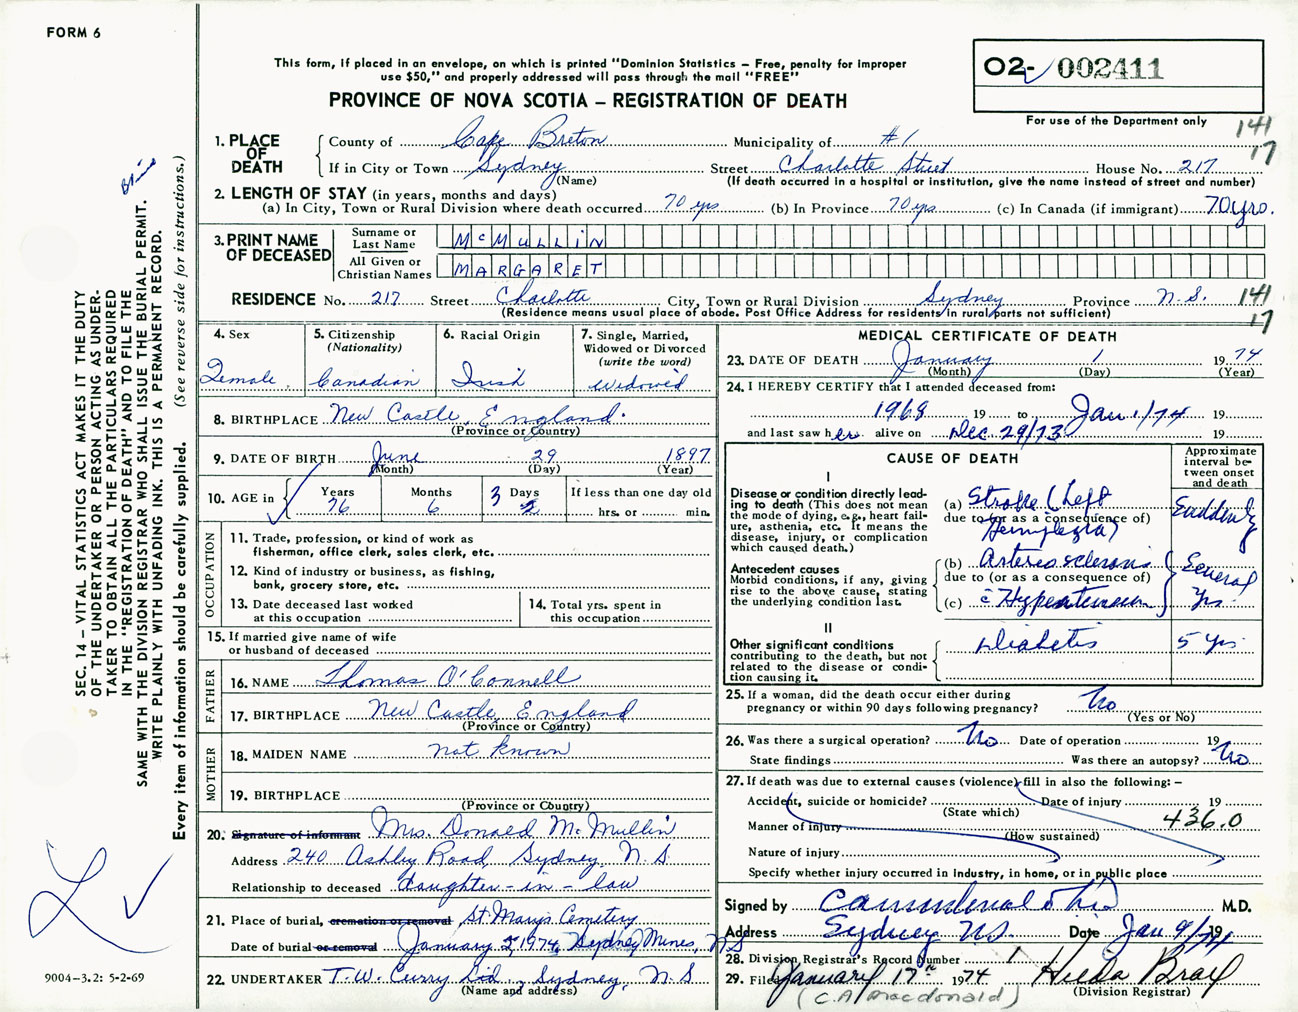 FORM 6
This form, if placed in an envelope, on which is printed "Dominion Statistics – Free, penalty for improper
use $50," and properly addressed will pass through the mail "FREE"
PROVINCE OF NOVA SCOTIA – REGISTRATION OF DEATH
02- 002411
For use of the Department only
141
17
1. PLACE OF DEATH
County of Cape Breton Municipality of #1
If in City or Town Sydney Street Charlotte Street House No. 217
(Name) (If death occurred in a hospital or institution, give the name instead of street and number)
2. LENGTH OF STAY (in years, months and days)
(a) In City, Town or Rural Division where death occurred 70 yrs (b) In Province 70 yrs (c) In Canada (if immigrant) 70 yrs.
3. PRINT NAME OF DECEASED
Surname or Last Name McMULLiN
All Given or Christian Names MARGARET
RESIDENCE No. 217 Street Charlotte City, Town or Rural Division Sydney Province N.S.
(Residence means usual place of abode. Post Office Address for residents in rural parts not sufficient)
141
17
4. Sex
Female.
5. Citizenship
(Nationality)
Canadian
6. Racial Origin
Irish
7. Single, Married,
Widowed or Divorced
(write the word)
widowed
8. BIRTHPLACE New Castle, England.
(Province or Country)
9. DATE OF BIRTH June 29 1897
(Month) (Day) (Year)
10. AGE in
Years 76
Months 6
Days 3 2
If less than one day old
hrs. or min.
OCCUPATION
11. Trade, profession, or kind of work as
fisherman, office clerk, sales clerk, etc.
12. Kind of industry or business, as fishing,
bank, grocery store, etc.
13. Date deceased last worked
at this occupation
14. Total yrs. spent in
this occupation
15. If married give name of wife
or husband of deceased
FATHER
16. NAME Thomas O'Connell
17. BIRTHPLACE New Castle, England
(Province or Country)
MOTHER
18. MAIDEN NAME not known
19. BIRTHPLACE
(Province or Country)
20. Signature of informant Mrs. Donald McMullin
Address 240 Ashby Road, Sydney, N.S.
Relationship to deceased daughter-in-law
21. Place of burial, cremation or removal St. Marys Cemetery
Date of burial or removal January 2, 1974, Sydney Mines, NS
22. UNDERTAKER T.W. Curry Ltd., Sydney, N.S
(Name and address)
MEDICAL CERTIFICATE OF DEATH
23. DATE OF DEATH January 1 1974
(Month) (Day) (Year)
24. I HEREBY CERTIFY that I attended deceased from:
1968 19 to Jan 1/74 19
and last saw her alive on Dec. 29/73 19
CAUSE OF DEATH
Approximate
interval be-
tween onset
and death
I
Disease or condition directly lead-
ing to death (This does not mean
the mode of dying, e.g., heart fail-
ure, asthenia, etc. It means the
disease, injury, or complication
which caused death.)
(a) Stroke (Left
due to (or as a consequence of)
Hemiplegia)
Suddenly
Antecedent causes
Morbid conditions, if any, giving
rise to the above cause, stating
the underlying condition last.
(b) Arteriosclerosis
due to (or as a consequence of)
(c) c̄ Hypertension
Several
Yrs.
II
Other significant conditions
contributing to the death, but not
related to the disease or condi-
tion causing it.
Diabetis
5 Yrs
25. If a woman, did the death occur either during
pregnancy or within 90 days following pregnancy? No
(Yes or No)
26. Was there a surgical operation? No Date of operation 19
State findings Was there an autopsy? No
27. If death was due to external causes (violence) fill in also the following: –
Accident, suicide or homicide? Date of injury 19
(State which)
436.0
Manner of injury
(How sustained)
Nature of injury
Specify whether injury occurred in industry, in home, or in public place
Signed by M.D.
Address Sydney NS. Date Jan 9/74 19
28. Division Registrar's Record Number 1
29. Filed January 17th 1974 Hilda Bray
(Division Registrar)
(C.A. Macdonald)
SEC. 14 – VITAL STATISTICS ACT MAKES IT THE DUTY
OF THE UNDERTAKER OR PERSON ACTING AS UNDER-
TAKER TO OBTAIN ALL THE PARTICULARS REQUIRED
IN THE "REGISTRATION OF DEATH" AND TO FILE THE
SAME WITH THE DIVISION REGISTRAR WHO SHALL ISSUE THE BURIAL PERMIT.
WRITE PLAINLY WITH UNFADING INK. THIS IS A PERMANENT RECORD.
Every item of information should be carefully supplied. (See reverse side for instructions.)
9004-3.2: 5-2-69